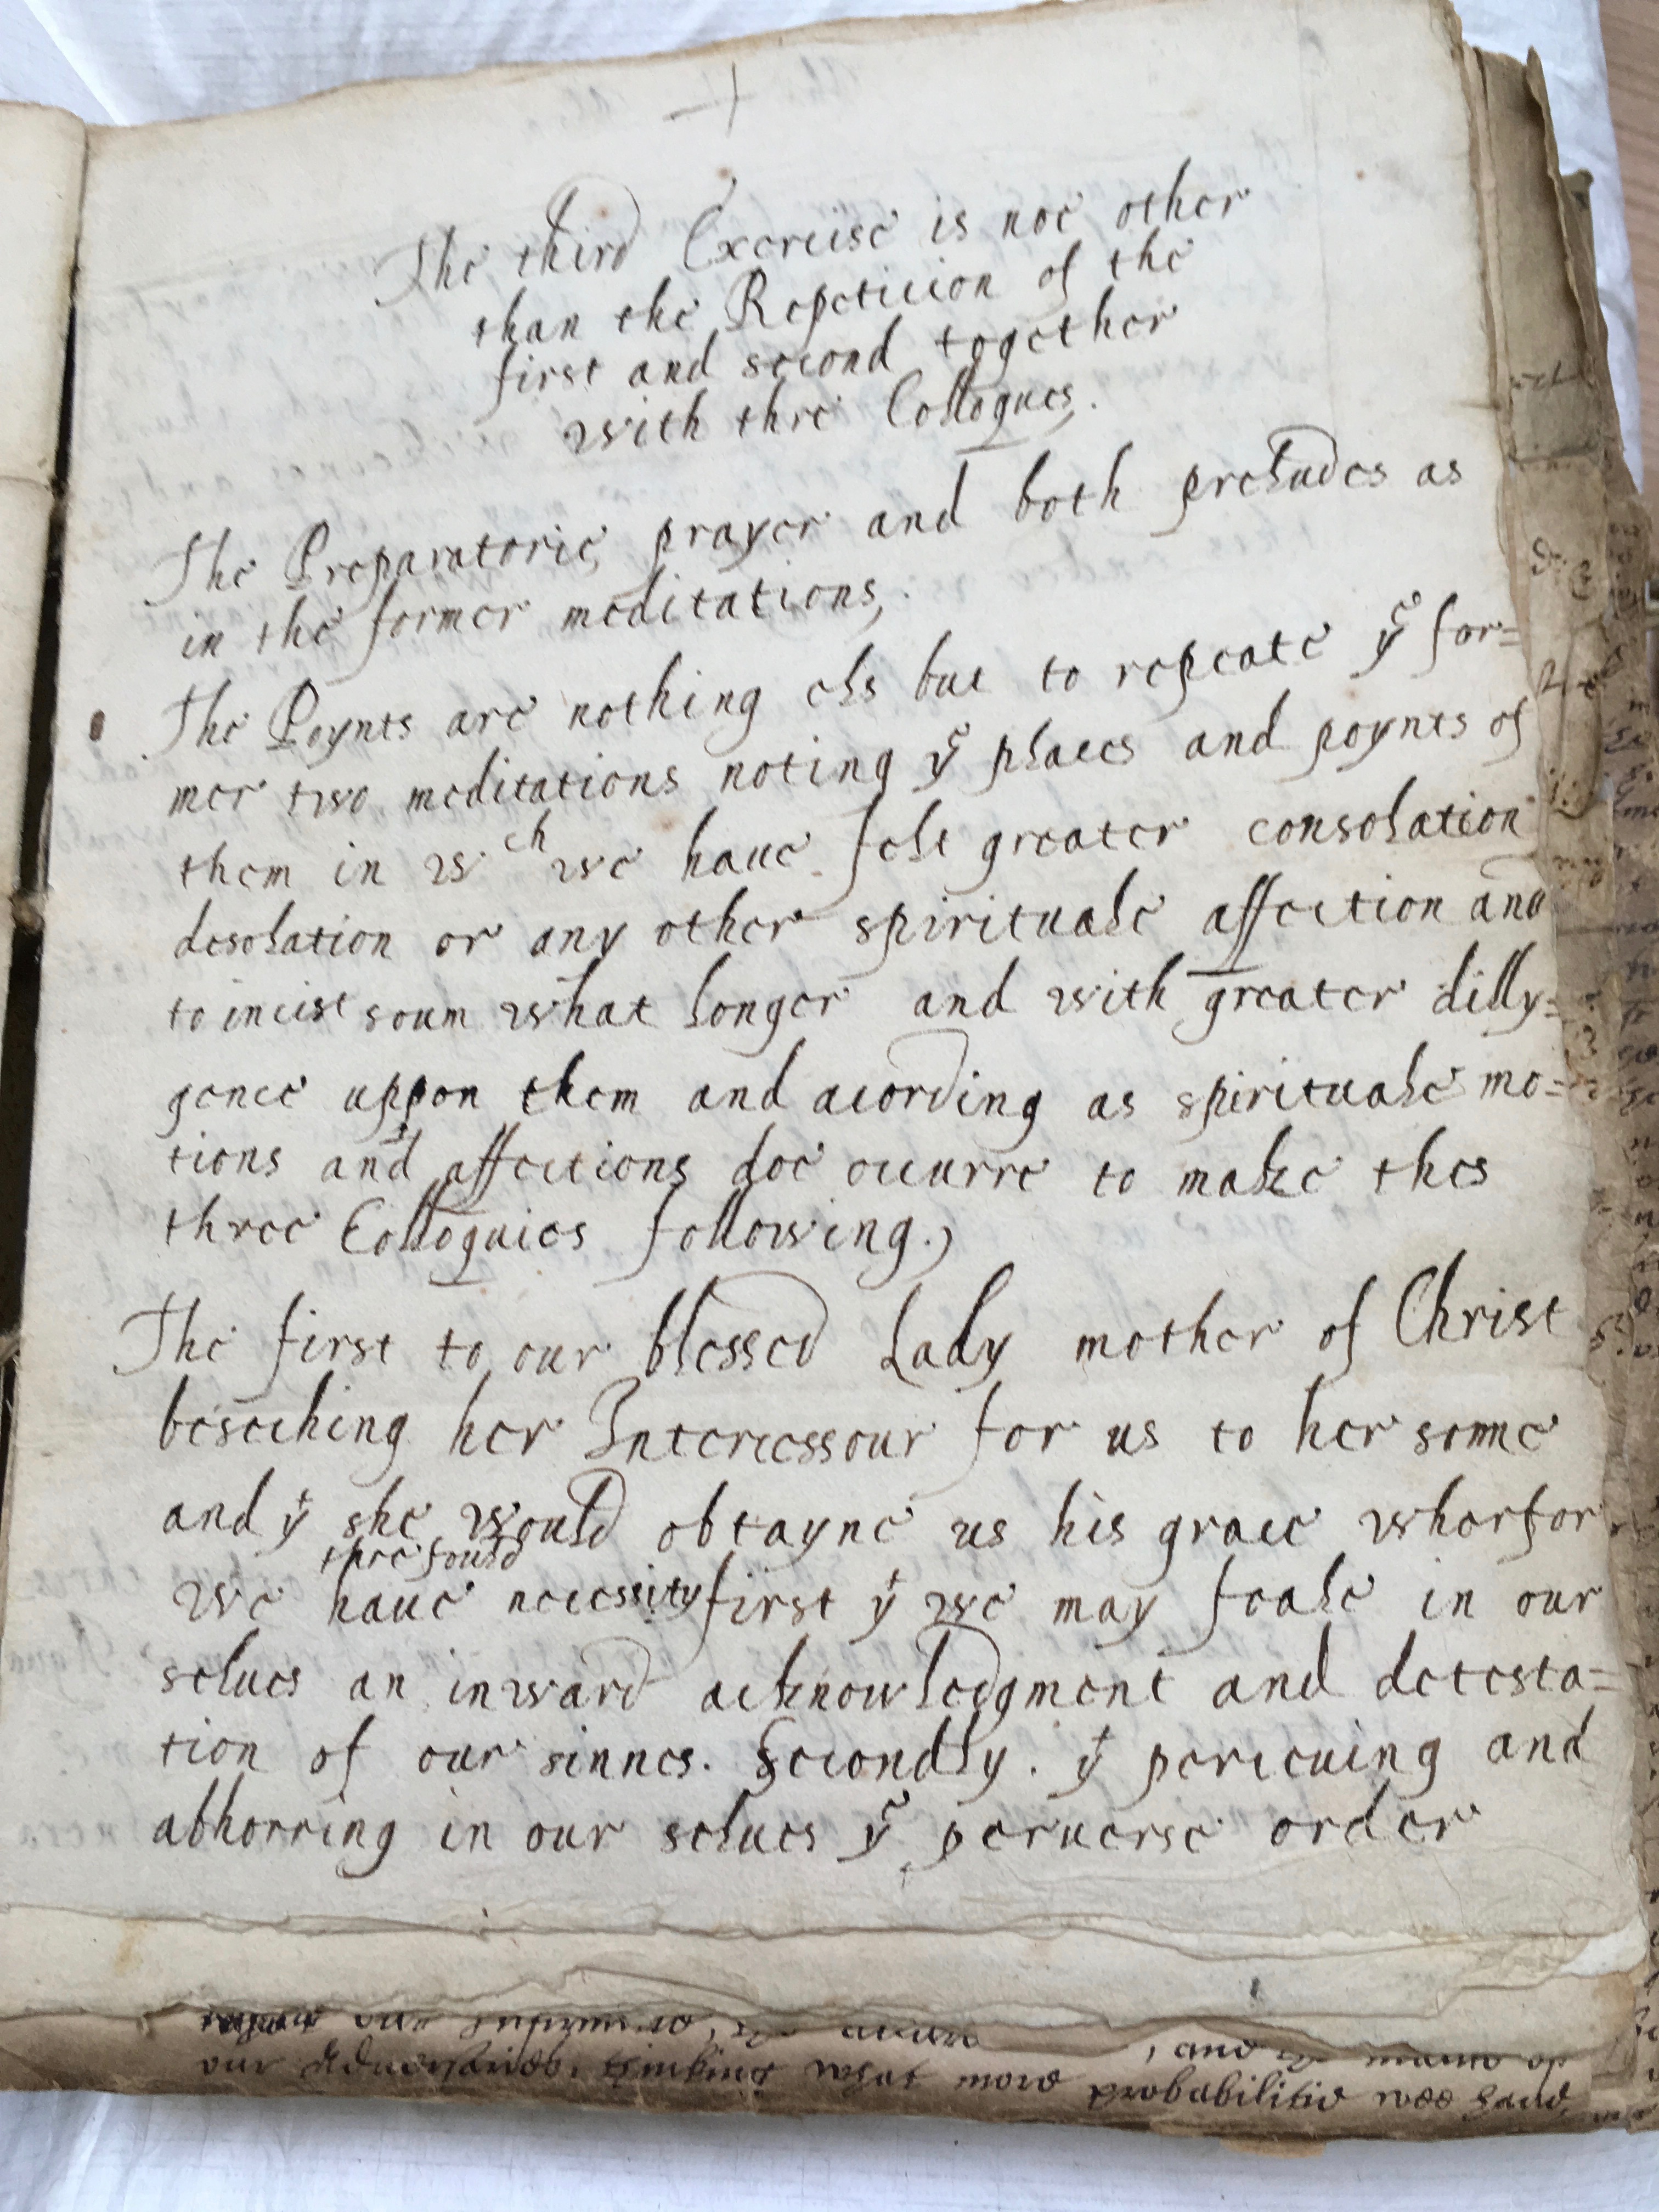 The third Exercise is noe other
than the Repeticion of the
first and second together
with thre Colloques.
The Preparatorie prayer and both preludes as
in the former meditations,.
The Poynts are nothing els but to repeate yᵉ for=
mer two meditations noting yᵉ places and poynts of
them in wᶜʰ we haue felt greater consolation
desolation or any other spirituale affection and
to incist soum what longer and with greater dilly=
gence uppon them and acording as spirituale mo=
tions and affections doe occurre to make thes
three Colloquies following.,
The first to our blessed Lady mother of Christ
beseching her Intercessour for us to her sonne
and yᵗ she would obtayne us his grace wherfor
thre fould
we haue necessity first yᵗ we may feale in our
selues an inward acknowledgment and detesta=
tion of our sinnes. Secondly. yᵗ perceuing and
abhorring in our selues yᵉ peruerse order
, and
our Aduersaries, thinking what more probabilitie wee haue,